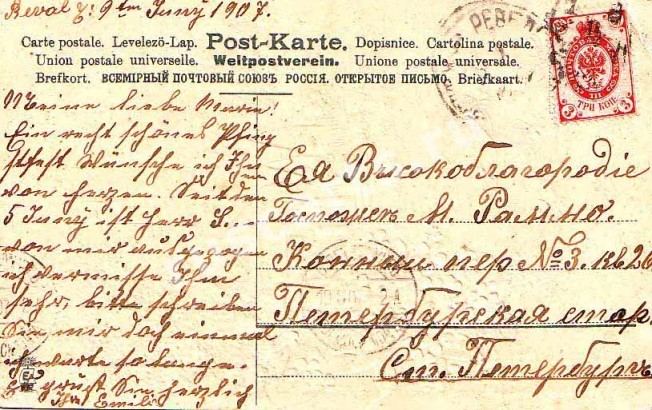 Reval d: 9ten Juny 1907.
Carte postale. Levelező-Lap. Post-Karte. Dopisnice. Cartolina postale.
Union postale universelle. Weltpostverein. Unione postale universale.
Brefkort. ВСЕМІРНЫЙ ПОЧТОВЫЙ СОЮЗЪ РОССІЯ. ОТКРЫТОЕ ПИСЬМО. Briefkaart.
РЕВЕЛ
3 ТРИ КОП. 3
Meine liebe Marie!
Ein recht schönes Pfing
stfest Wünsche ich Ihnen
von herzen. Seit den
5 Juny ist Herr S...
von mir ausgezogen
ich vermisse Ihm
sehr, bitte schreiben
Sie mir doch einmal
ich warte so lange.
Es grüst Sie herzlich
Ihre Emilie
Ея Высокоблагородіе
Госпожъ М. Раммо.
Конный пер № 3. кв 26
Петербурская стор.
Ст. Петербургъ